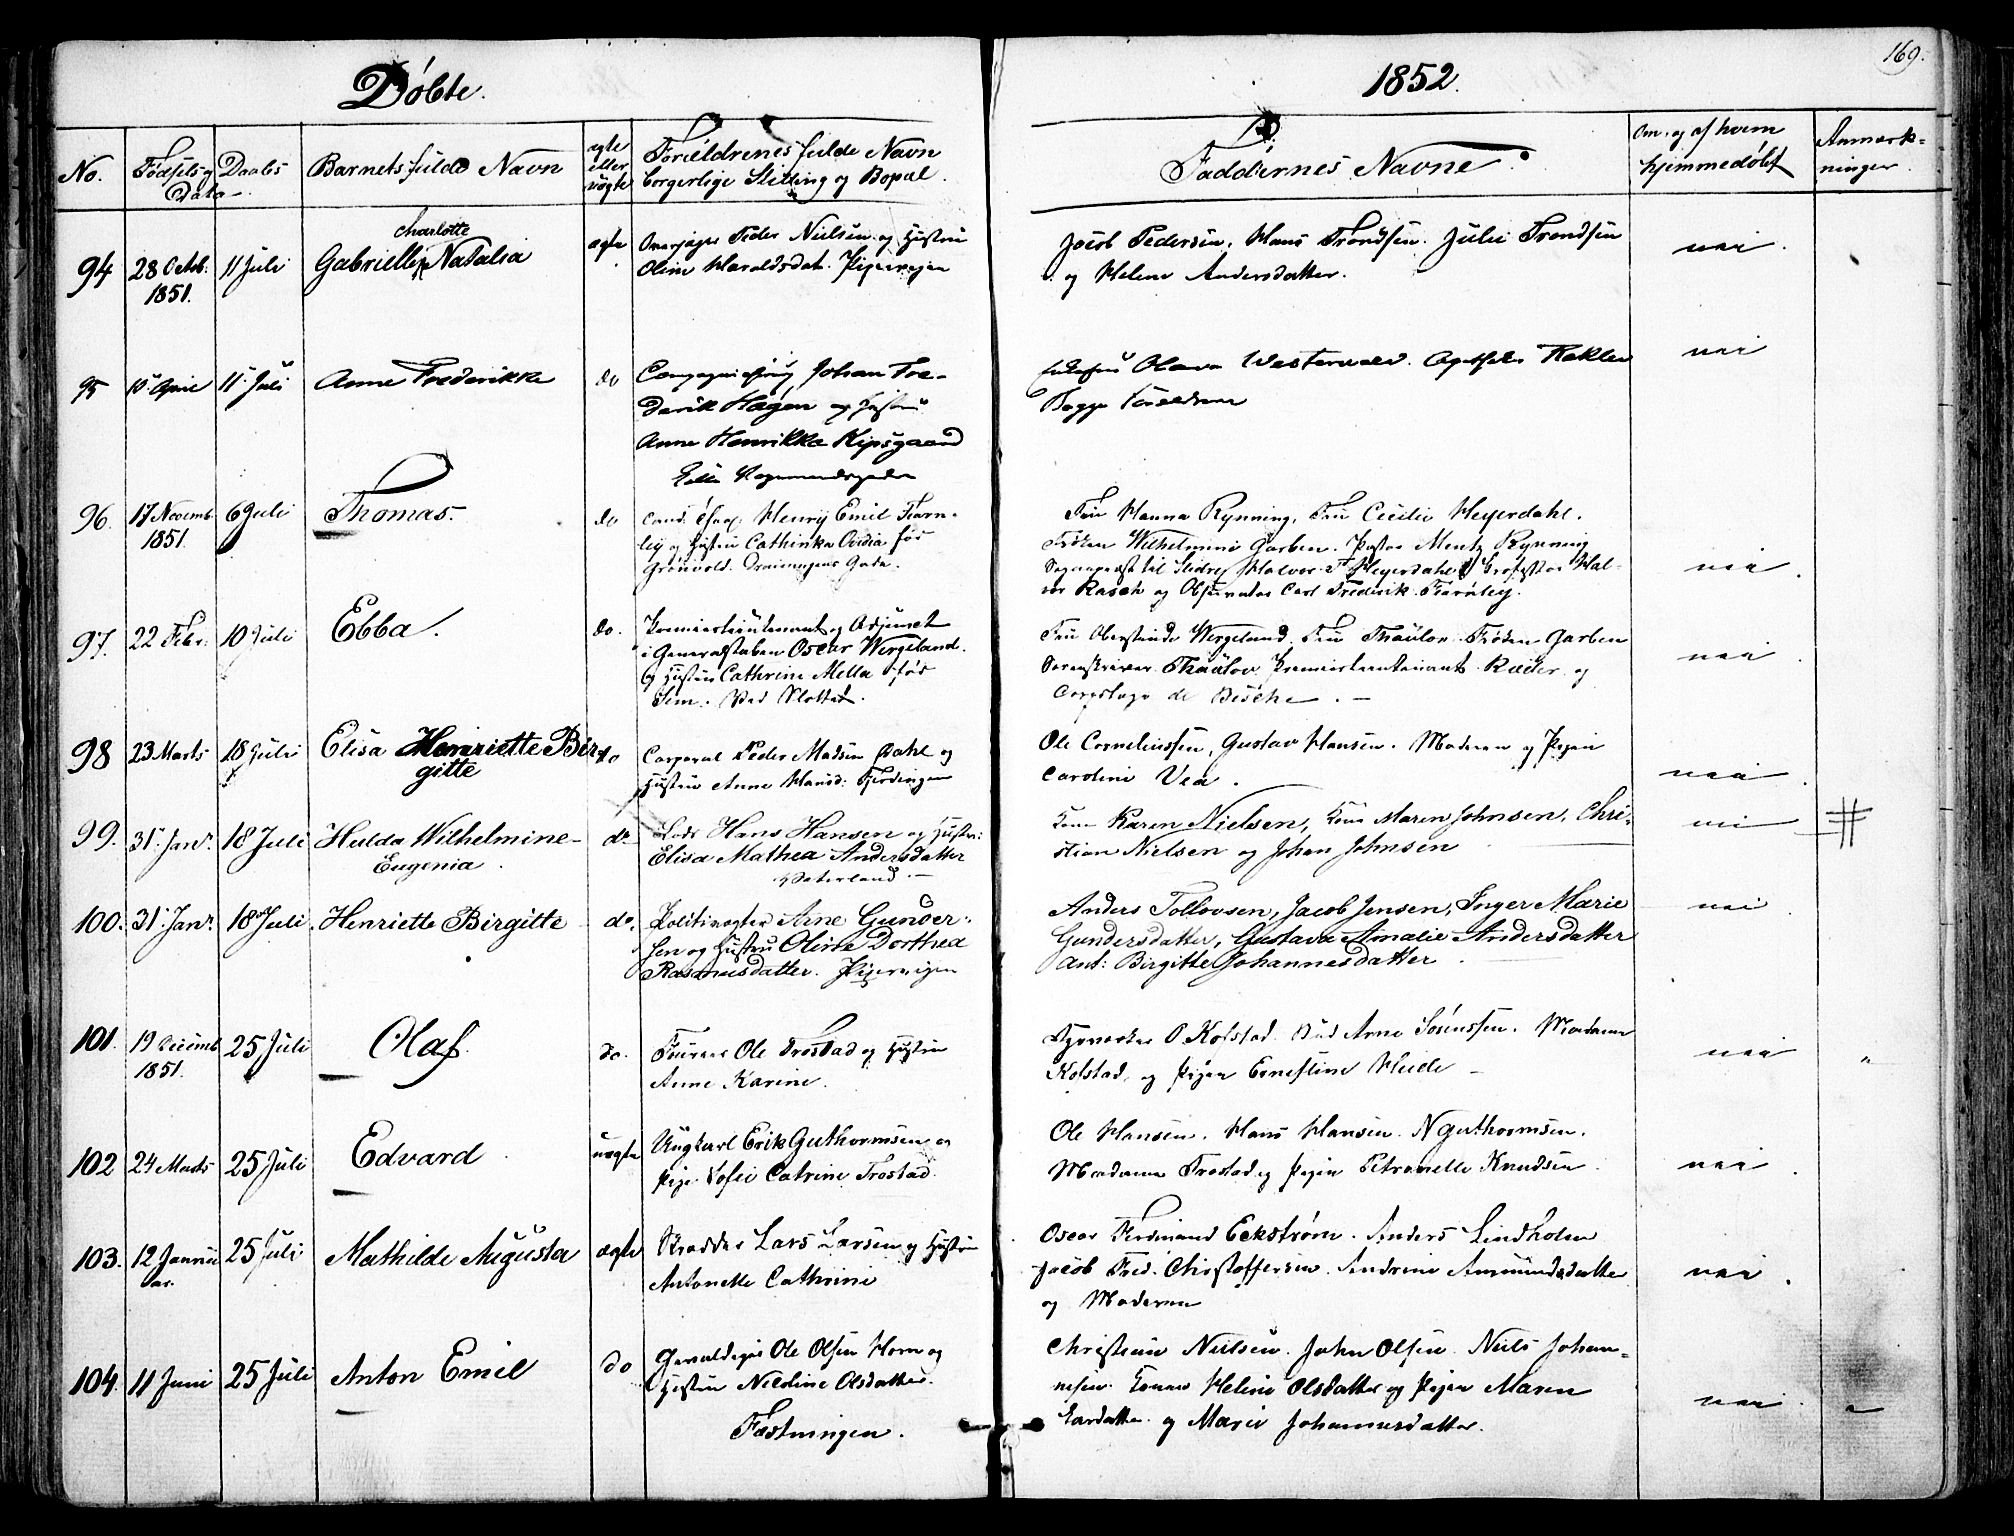 169.
Døbte. 1852.
No. Fødsels og Daabs Data Barnets fulde Navn ægte eller uægte Forældrenes fulde Navn borgerlige Stilling og Bopæl. Faddernes Navne. Om, og af hvem hjemmedøbt Anmærkninger.
94 28 Octob. 1851. 11 Juli Gabrielle Charlotte Natalia ægte
Peder Nielsen og Hustru
Oline Haraldsdat. Pipervigen
Jacob Pedersen, Hans Trondsen. Julie Trondsen
og Helene Andersdatter.
nei.
95 11 Juli Anne Frederikke do
Johan Fre-
derik Hagen og Hustru
Anne Henrikke Kipsgaard
Olava
Begge Forældrene
nei
96. 17 Novemb. 1851. 6 Juli Thomas. do
Cand. Henrij Emil Fearn-
ley og Hustru Cathinka Ovidia før
Grønvold.
Fru Hanna Rynning, Fru Cecilie Heyerdahl.
Frøken Wilhelmine Garben. Pastor Mentz Rynning
Sogneprest til Slidre, Halvor Heyerdahl, Professor Hal-
vor Rasch og Observator Carl Frederik Fearnley.
nei.
97. 22 Febr: 10 Juli Ebba. do.
Premierlieutenant og Adjunct
i Generalstaben Oscar Wergeland.
og Hustru Cathrine Mella før
Sem. Ved Slottet.
Fru Oberstinde Wergeland. Fru Thaulov Frøken Garben
Sorenskriver Thaulov, Premierlieutenant Ræder og
Corpslæge de Besche. -
nei.
98 23 Marts 18 Juli Elisa Henriette Bir-
gitte do
Corporal Peder Madsen Dahl og
Hustru Anne Hansd: Fjerdingen
Ole Corneliussen, Gustav Hansen. Moderen og Pigen
Caroline Vea.
nei.
99. 31 Janr. 18 Juli Hulda Wilhelmine-
Eugenia. do
Hans Hansen og Hustru:
Elisa Mathea Andersdatter
Vaterland -
Kone Karen Nielsen, Kone Maren Johnsen, Chri-
stian Nielsen og Johan Johnsen
nei
100. 31 Janr 18 Juli Henriette Birgitte do.
Politivagter Arne Gunder-
sen og Hustru Oliva Dorthea
Rasmusdatter. Pipervigen
Anders Tollovsen, Jacob Jensen, Inger Marie
Gundersdatter, Gustava Amalie Andersdatter
ant: Birgitte Johannesdatter.
nei.
101. 19 Decemb 1851. 25 Juli Olaf. do.
Fureer Ole Trostad og Hustru
Anne Karine.
O Kolstad. Arne Sørenssen. Madame
Kolstad, og Pigen Ernestine Heide -
nei "
102 24 Marts 25 Juli Edvard. uægte
Ungkarl Erik Guthormsen og
Pige Sofie Catrine Trostad.
Ole Hansen. Hans Hansen. N Guthormsen.
Madame Trostad og Pigen Petronelle Knudsen.
nei.
103. 12 Janu-
ar. 25 Juli Mathilde Augusta ægte
Skrædder Lars Larsen og Hustru
Antonette Cathrine
Oscar Ferdinand Eckstrøm. Anders Lindholm
Jacob Fred. Christoffersen. Andrine Amundsdatter
og Moderen
nei.
104. 11 Juni 25 Juli Anton Emil do
Gevaldiger Ole Olsen Horn og
Hustru Nicoline Olsdatter.
Fæstningen.
Christian Nielsen. John Olsen. Niels Johan-
nesen. Konen Helene Olsdatter og Pigen Maren
Larsdatter. og Marie Johannesdatter.
nei. "